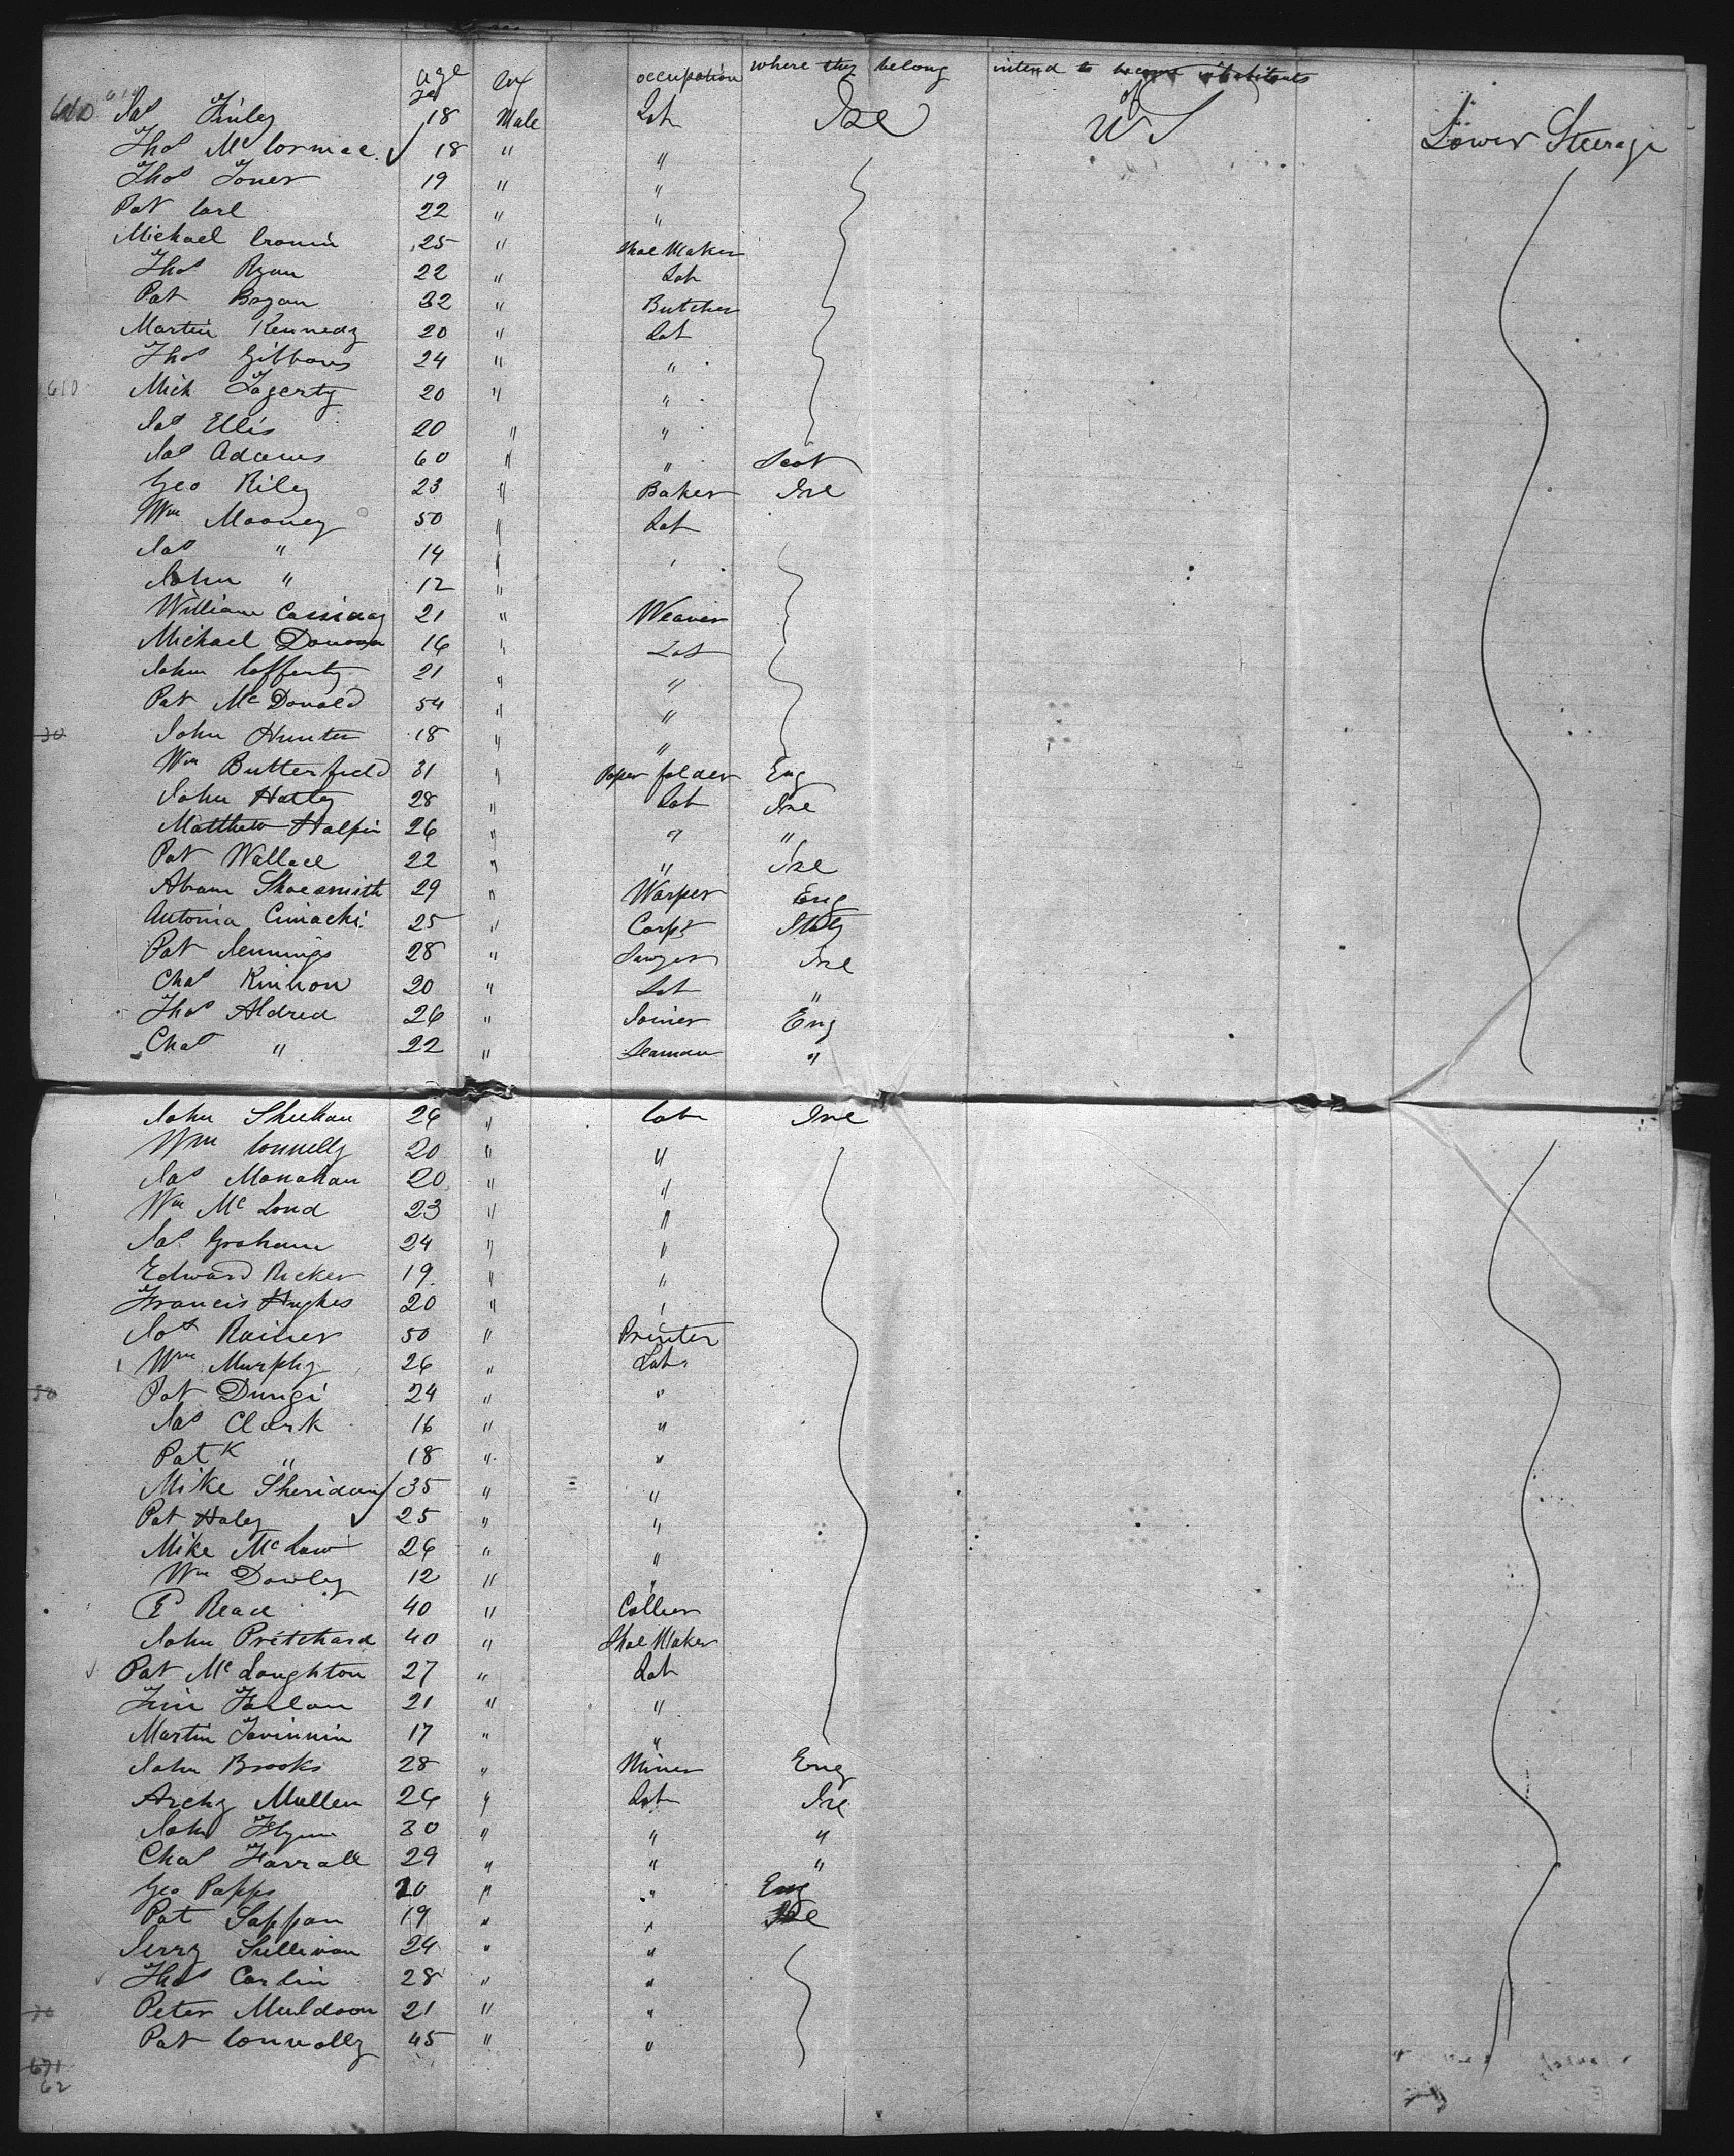 age sex occupation where they belong intend to become inhabitants of
Jas Finley 18 Male Lab Ire U S Lower Steerage
Thos McCormac 18 " "
Thos Toner 19 " "
Pat Carl 22 " "
Michael Cronin 25 " Shoe Maker
Thos Ryan 22 " Lab
Pat Bryan 32 " Butcher
Martin Kennedy 20 " Lab
Thos Gibbons 24 " "
610 Mich Fagerty 20 " "
Jas Ellis 20 " "
Jas Adams 60 " " Scot
Geo Riley 23 " Baker Ire
Wm Mooney 50 " Lab
Jas " 14 "
John " 12 "
William Cassiday 21 " Weaver
Michael Donovan 16 " Lab
John Cafferty 21 " "
Pat McDonald 54 " "
30 John Hunter 18 " "
Wm Butterfield 31 " Paper folder Eng
John Hatley 28 " Lab Ire
Matthew Halpin 26 " " "
Pat Wallace 22 " " Ire
Abram Shoesmith 29 " Warper Eng
Antonia Cimachi 25 " Carpt Italy
Pat Jennings 28 " Sawyer Ire
Chas 20 " Lab "
Thos Aldred 26 " Joiner Eng
Chas " 22 " Seaman "
John Sheehan 26 " Lab Ire
Wm Connelly 20 " "
Jas Monahan 20 " "
Wm McLoud 23 " "
Jas Graham 24 " "
Edward Ricker 19 " "
Francis Hughes 20 " "
Jos Rainer 50 " Printer
Wm Murphy 26 " Lab
50 Pat 24 " "
Jas Clark 16 " "
Patk " 18 " "
Mike Sheridan 35 " "
Pat Haley 25 " "
Mike McLaw 26 " "
Wm Dowley 12 " "
P Reace 40 " Collier
John Pritchard 40 " Shoe Maker
Pat McLoughton 27 " Lab
Jim Farlan 21 " "
Martin 17 " "
John Brooks 28 " Miner Eng
Archy Mullen 26 " Lab Ire
John Flynn 30 " " "
Chas Farrall 29 " " "
Geo Papps 20 " " Eng
Pat Sappan 19 " " Ire
Jerry Sullivan 24 " "
Thos Carlin 28 " "
70 Peter Muldoon 21 " "
Pat Connolly 45 " "
671
62